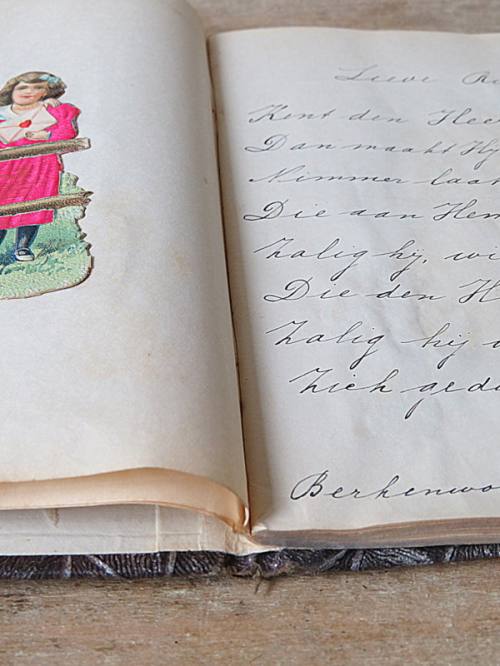 Lieve R
Kent den Hee
Dan maakt Hij
Nimmer laat
Die aan Hem
Zalig hij, wi
Die den H
Zalig hij w
Zich ged
Berkenwo